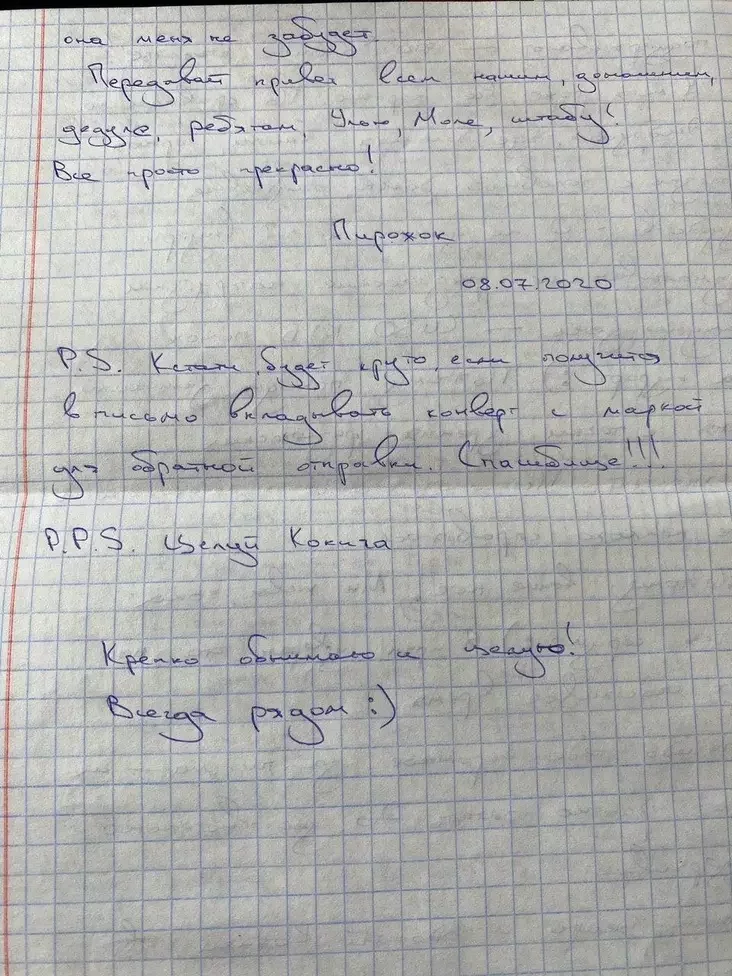 она меня не забудет
Передавай привет всем нашим, домашним,
дедуле, ребятам, Улью, Моле, штабу!
Все просто прекрасно!
Пирожок
08.07.2020
P.S. Кстати, будет круто, если получится
в письмо вкладывать конверт с маркой
для обратной отправки. Спасибище!!!
P.P.S. Целуй Кокича
Крепко обнимаю и целую!
Всегда рядом :)